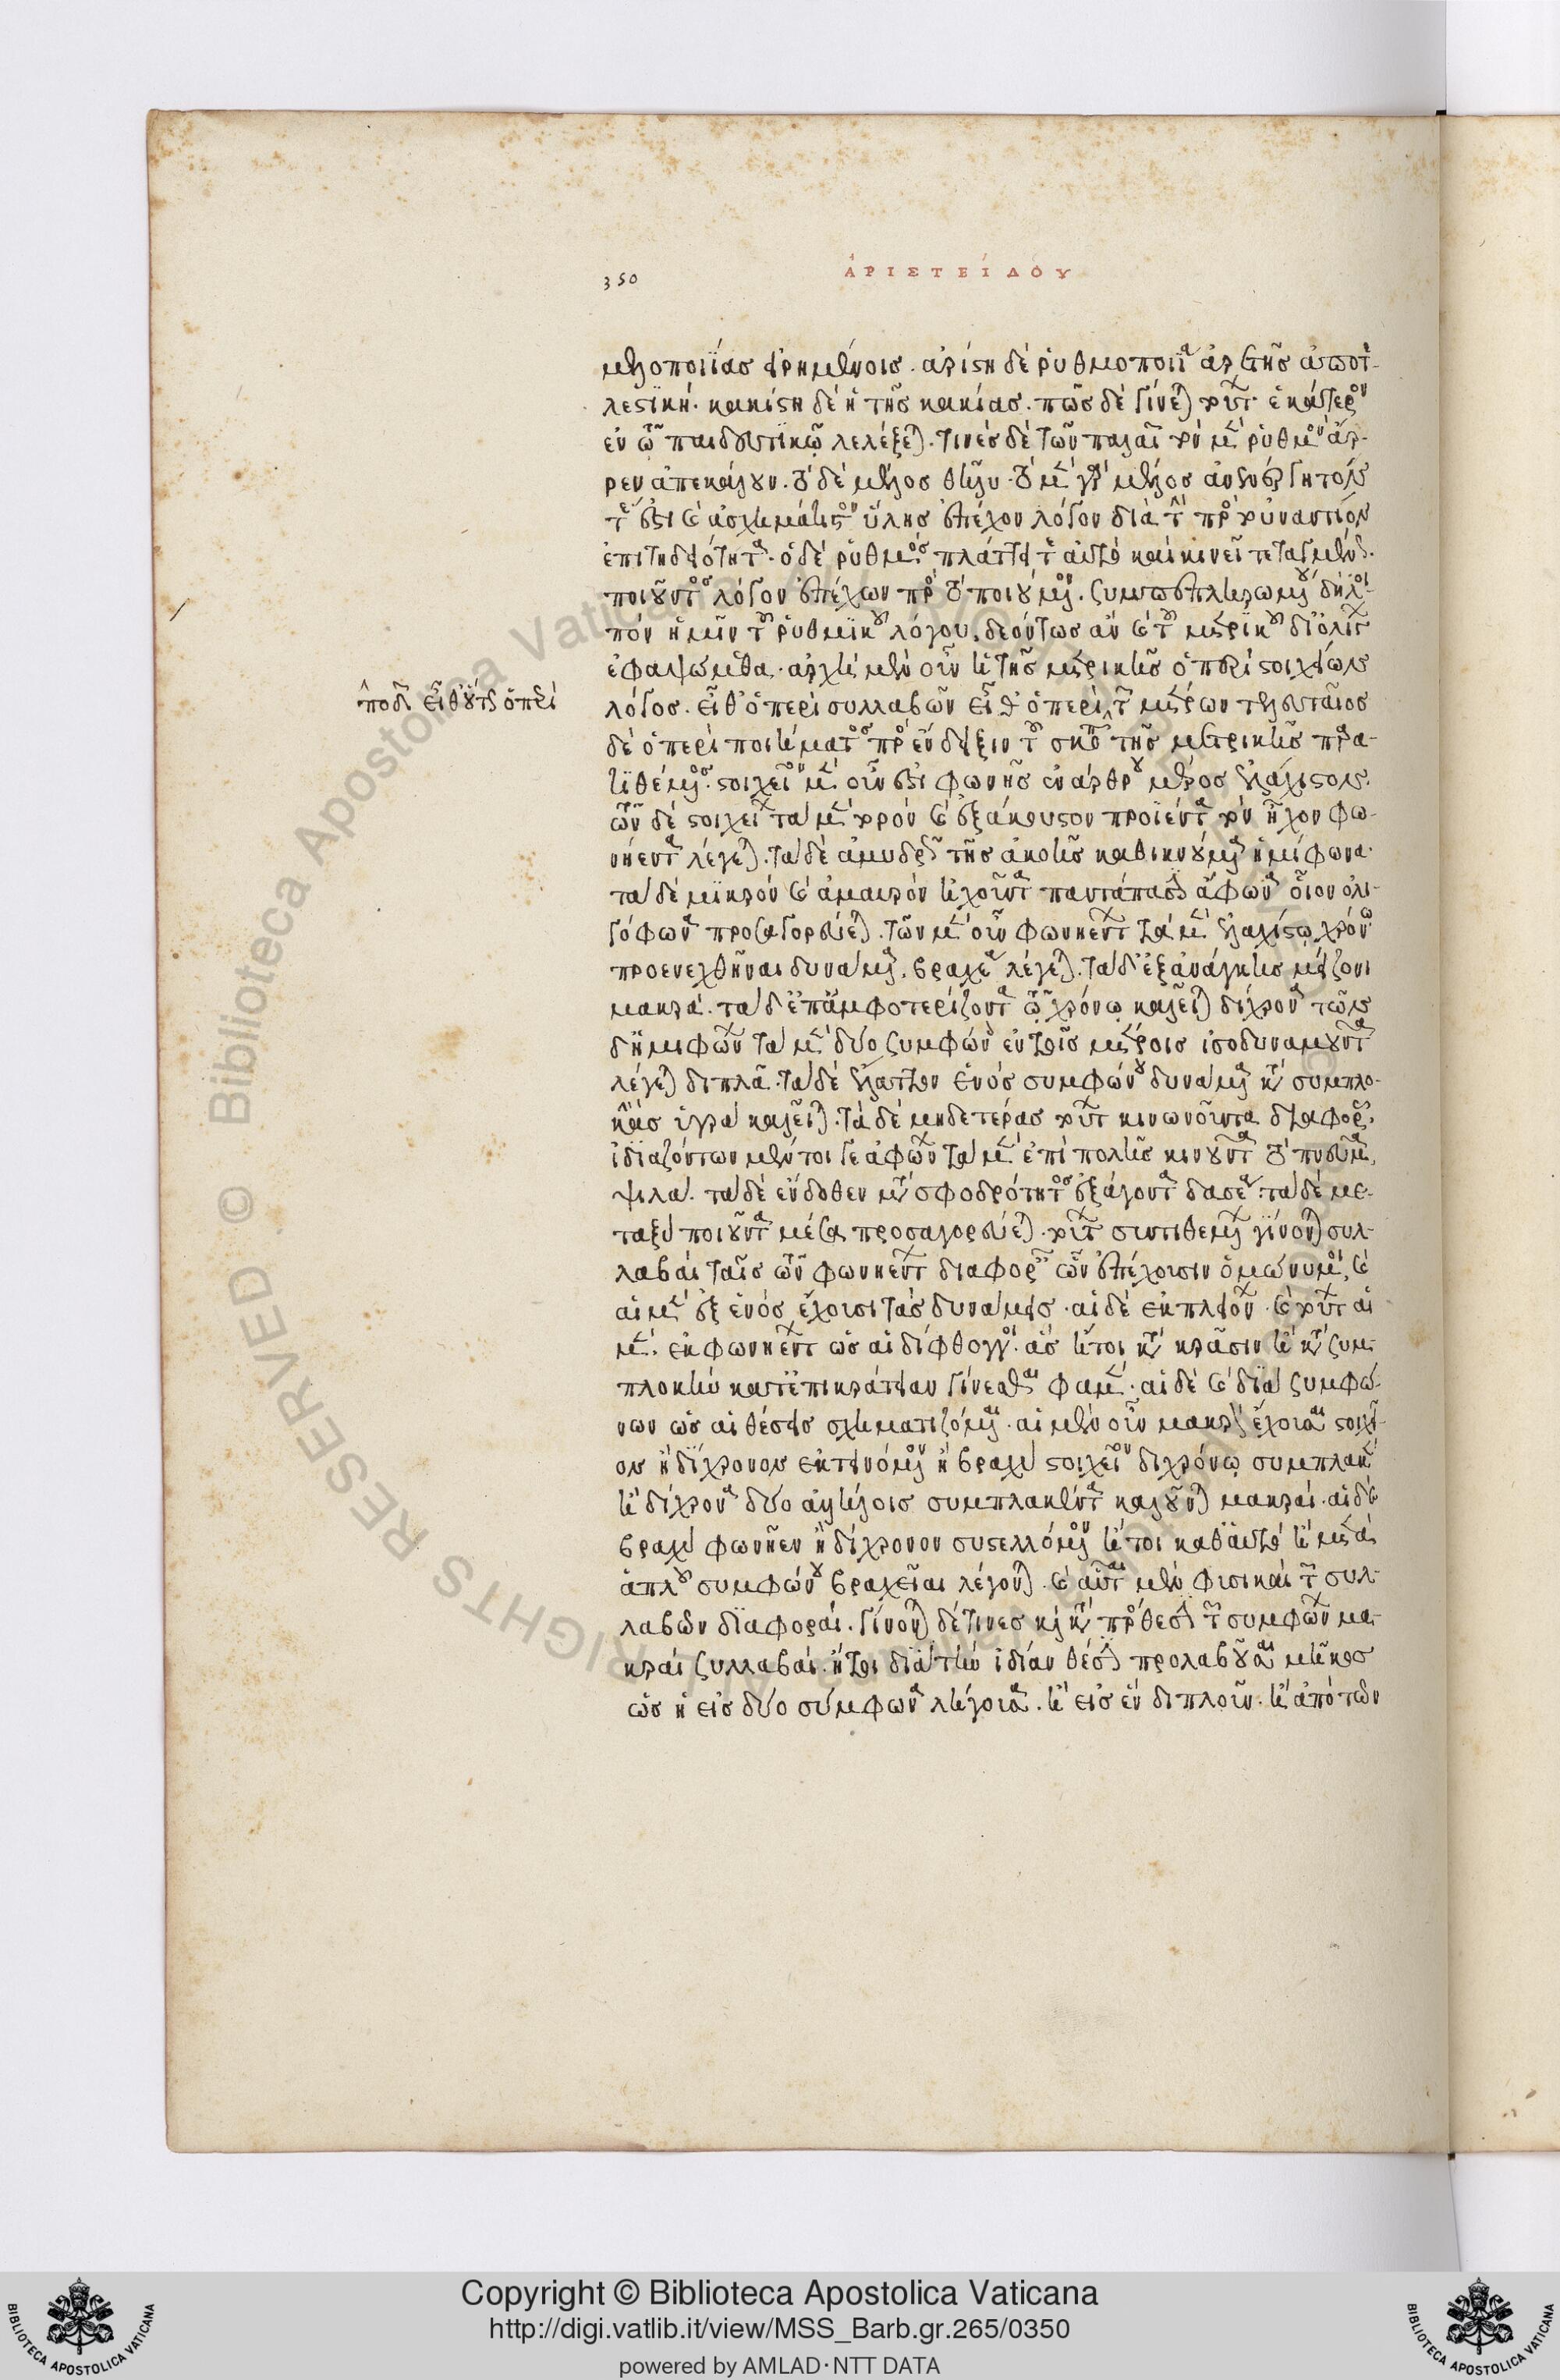 350
ἈΡΙΣΤΕΊΔΟΥ
μελοποιΐας εἰρημένοις. ἀρίστη δὲ ῥυθμοποιΐα ἀρετῆς ἀποτε-
λεστικὴ. κακίστη δὲ ἡ τῆς κακίας. πῶς δὲ γίνεται τούτων ἑκάτερον
ἐν τῶ παιδευτικῶ λελέξεται. τινὲς δὲ τῶν παλαιῶν τὸν μὲν ῥυθμὸν ἄρ-
ρεν ἀπεκάλουν. τὸ δὲ μέλος θῆλυ. τὸ μὲν γὰρ μέλος ἀνενέργητόν
τέ ἐστι καὶ ἀσχημάτιστον ὕλης ἐπέχον λόγον διὰ τὴν πρὸς τοὐναντίον
ἐπιτηδειότητα. ὁ δὲ ῥυθμὸς πλάττει τε αὐτὸ καὶ κινεῖ τεταγμένως.
ποιοῦντος λόγον ἐπέχων πρὸς τὸ ποιούμενον. συμπεπληρωμένου δὴ λοι-
πὸν ἡμῖν τοῦ ῥυθμικοῦ λόγου, δεόντως ἂν καὶ τοῦ μετρικοῦ δι' ὀλίγων
ἐφαψώμεθα. ἀρχὴ μὲν οὖν ἡ τῆς μετρικῆς ὁ περὶ στοιχείων
ποδῶν εἶθ' οὕτως ὁ περὶ
λόγος. εἶθ' ὁ περὶ συλλαβῶν εἶθ' ὁ περὶ τῶν μέτρων τελευταῖος
δὲ ὁ περὶ ποιήματος πρὸς ἔνδειξιν τοῦ σκοποῦ τῆς μετρικῆς παρα-
τιθέμενος. στοιχεῖον μὲν οὖν ἐστι φωνῆς ἐνάρθρου μέρος ἐλάχιστον.
τῶν δὲ στοιχείων τὰ μὲν τρανὸν καὶ ἐξάκουστον προϊέντα τὸν ἦχον φω-
νήεντα λέγεται. τὰ δὲ ἀμυδρῶς τῆς ἀκοῆς καθικνούμενα ἡμίφωνα.
τὰ δὲ μικρὸν καὶ ἀμαυρὸν ἠχοῦντα παντάπασιν ἄφωνα οἷον ὀλι-
γόφωνα προσαγορεύεται. τῶν μὲν οὖν φωνηέντων τὰ μὲν ἐλαχίστω χρόνω
προενεχθῆναι δυνάμενα, βραχέα λέγεται. τὰ δ' ἐξ ἀνάγκης μείζονι
μακρά. τὰ δ' ἐπαμφοτερίζοντα τῶ χρόνω καλεῖται δίχρονα τῶν
δ' ἡμιφώνων τὰ μὲν δύο συμφώνοις ἐν τοῖς μέτροις ἰσοδυναμοῦντα
λέγεται διπλᾶ. τὰ δὲ ἔλαττον ἑνὸς συμφώνου δυνάμενα κατὰ συμπλο-
κὰς ὑγρὰ καλεῖται. τὰ δὲ μηδετέρας τούτων κοινωνοῦντα διαφορᾶς,
ἰδιαζόντων μέντοι γε ἀφώνων τὰ μὲν ἐπιπολῆς κινοῦντα τὸ πνεῦμα,
ψιλά. τὰ δὲ ἔνδοθεν μετὰ σφοδρότητος ἐξάγοντα δασέα. τὰ δὲ με-
ταξὺ ποιοῦντα μέσα προσαγορεύεται. τούτων συντιθεμένων γίνονται συλ-
λαβαὶ ταῖς τῶν φωνηέντων διαφοραῖς ὧν ἐπέχουσιν ὁμώνυμοι, καὶ
αἱ μὲν ἐξ ἑνὸς ἔχουσι τὰς δυνάμεις. αἱ δὲ ἐκ πλειόνων. καὶ τούτων αἱ
μὲν. ἐκ φωνηέντων ὡς αἱ δίφθογγοι. ἃς ἤτοι κατὰ κρᾶσιν ἢ κατὰ συμ-
πλοκὴν κατ' ἐπικράτειαν γίνεσθαι φαμέν. αἱ δὲ καὶ διὰ συμφώ-
νων ὡς αἱ θέσεις σχηματιζόμεναι. αἱ μὲν οὖν μακρὸν ἔχουσαι στοιχεῖ-
ον ἢ δίχρονον ἐκτεινόμενον ἢ βραχὺ στοιχεῖον διχρόνω συμπλακὲν
ἢ δίχρονα δύο ἀλλήλοις συμπλακέντα καλοῦνται μακραί. αἱ δὲ
βραχὺ φωνῆεν ἢ δίχρονον συστελλόμενον ἤτοι καθ' αὑτὸ ἢ μετὰ
ἁπλοῦ συμφώνου βραχεῖαι λέγονται. καὶ αὗται μὲν φυσικαὶ τῶν συλ-
λαβῶν διαφοραί. γίνονται δέ τινες καὶ κατὰ πρόσθεσιν τῶν συμφώνων μα-
κραὶ συλλαβαί. ἤτοι διὰ τὴν ἰδίαν θέσιν προλαβοῦσαι μῆκος
ὡς ἡ εἰς δύο σύμφωνα λήγουσα. ἢ εἰς ἓν διπλοῦν. ἢ ἀπὸ τῶν
Copyright © Biblioteca Apostolica Vaticana
http://digi.vatlib.it/view/MSS_Barb.gr.265/0350
powered by AMLAD·NTT DATA